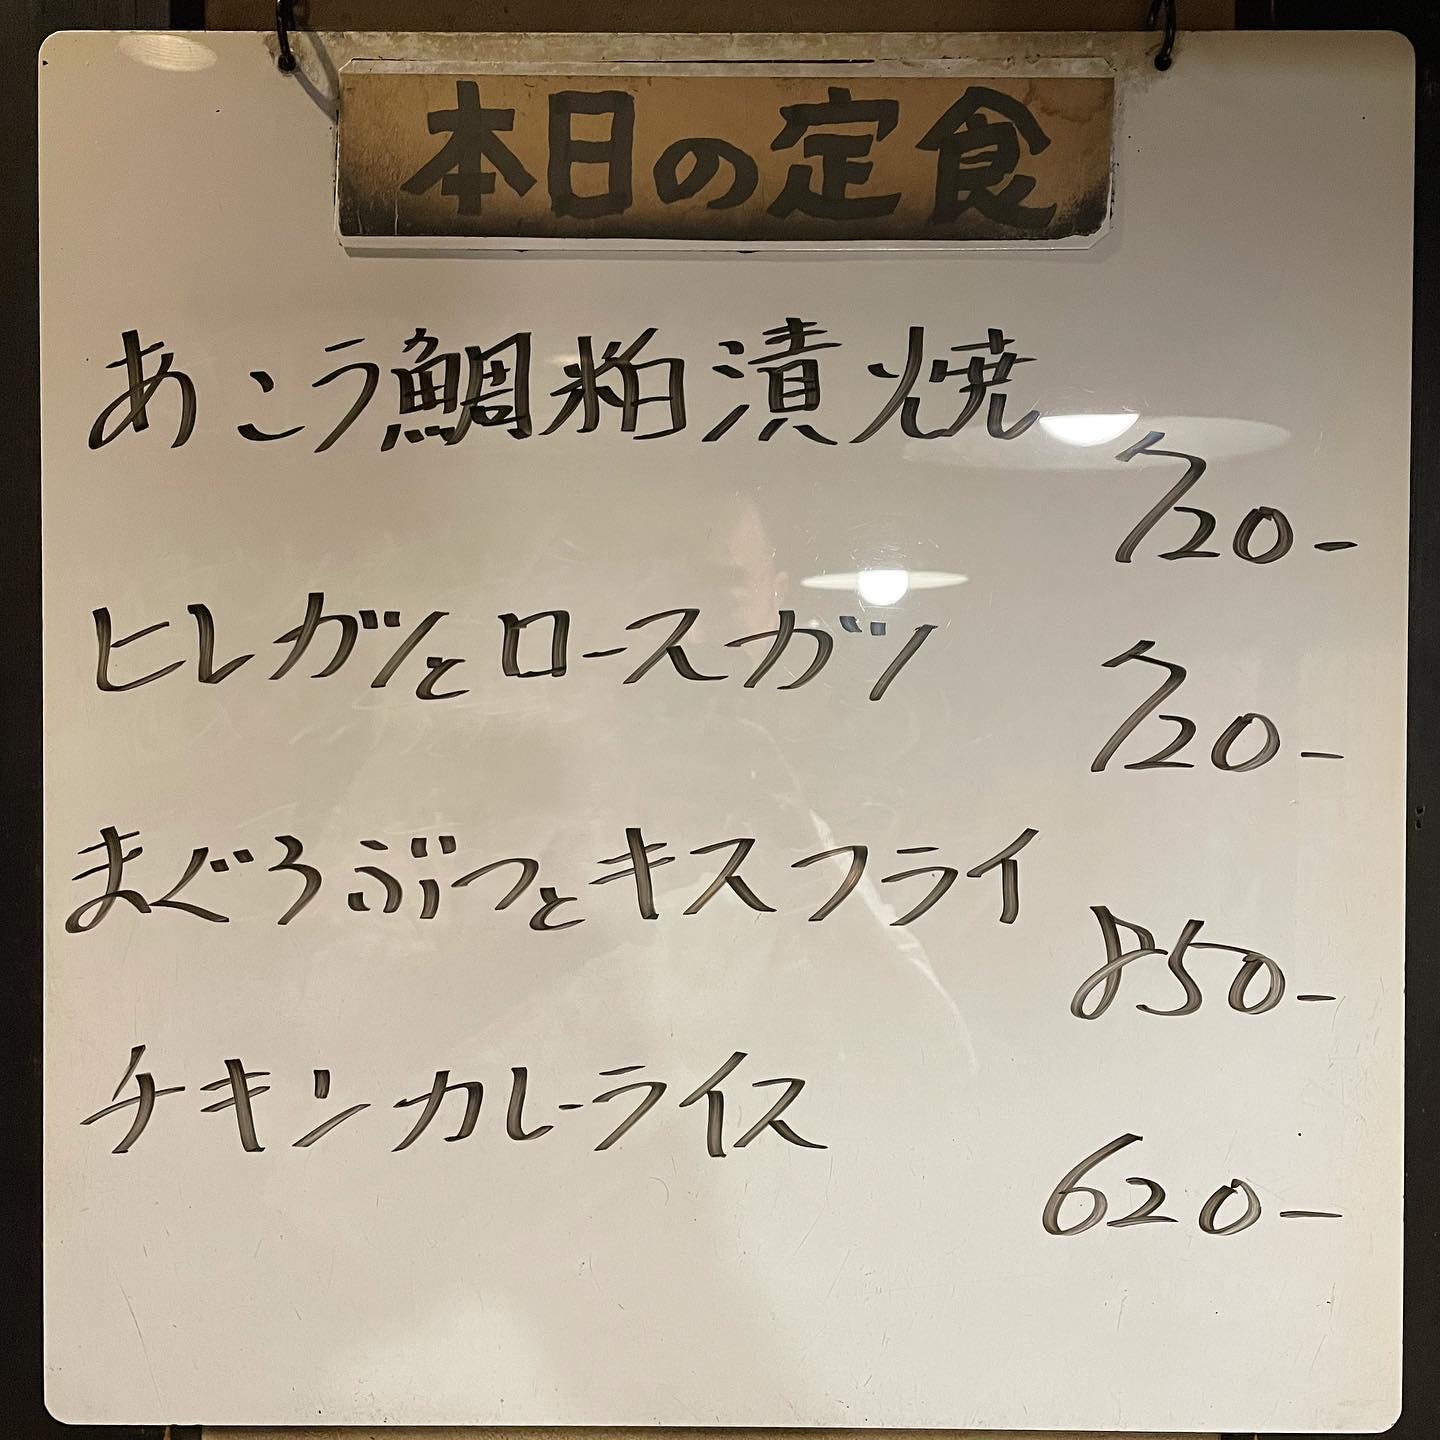 本日の定食
あこう鯛粕漬焼
720-
ヒレカツとロースカツ
720-
まぐろぶつとキスフライ
850-
チキンカレーライス
620-